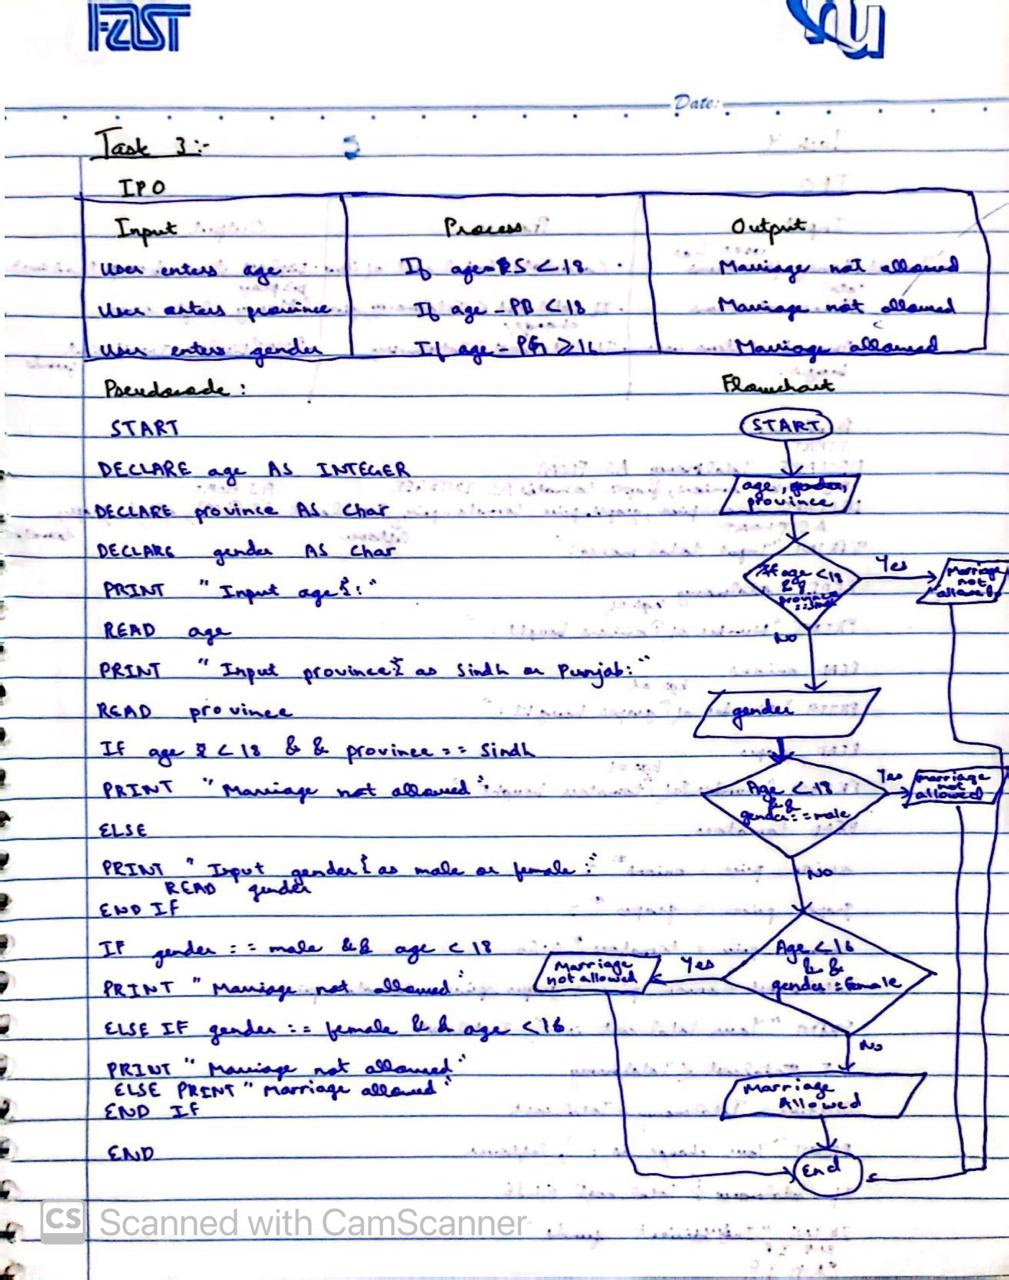 FAST
nu
Date:
Task 3:-
IPO
Input Process Output
User enters age If age-S < 18 Marriage not allowed
User enters province If age-PB < 18 Marriage not allowed
User enters gender If age-PG ≥ 16 Marriage allowed
Pseudocode:
START
DECLARE age AS INTEGER
DECLARE province AS Char
DECLARE gender AS Char
PRINT " Input age:"
READ age
PRINT " Input province as Sindh or Punjab:"
READ province
If age < 18 && province == Sindh
PRINT "Marriage not allowed"
ELSE
PRINT " Input gender as male or female:"
READ gender
END IF
IF gender == male && age < 18
PRINT " Marriage not allowed"
ELSE IF gender == female && age < 16
PRINT " Marriage not allowed"
ELSE PRINT " Marriage allowed"
END IF
END
Flowchart
START
age, gender,
province
If age < 18
&&
province
== Sindh
Yes
Marriage
not
allowed
No
gender
Age < 18
&&
gender == male
Yes
marriage
not
allowed
No
Age < 16
&&
gender = Female
Yes
Marriage
not allowed
No
Marriage
Allowed
End
CS Scanned with CamScanner